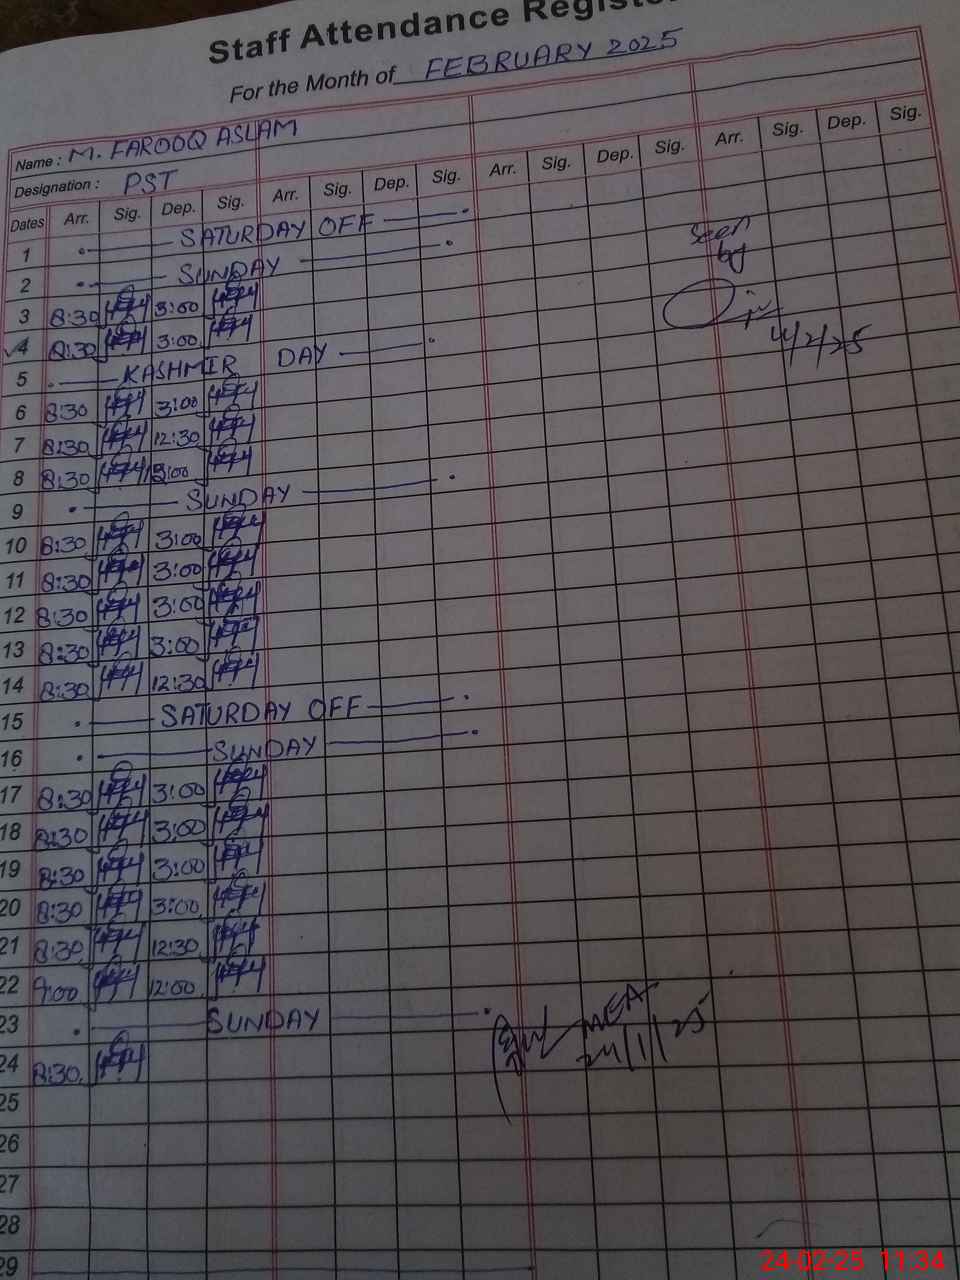 Staff Attendance Register
For the Month of FEBRUARY 2025
Name : M. FAROOQ ASLAM
Designation : PST
Dates Arr. Sig. Dep. Sig. Arr. Sig. Dep. Sig. Arr. Sig. Dep. Sig. Arr. Sig. Dep. Sig.
1 SATURDAY OFF
2 SUNDAY
seen
by
3 8:30 3:00
4 8:30 3:00
4/2/25
5 KASHMIR DAY
6 8:30 3:00
7 8:30 12:30
8 8:30
9 SUNDAY
10 8:30 3:00
11 8:30 3:00
12 8:30 3:00
13 8:30 3:00
14 8:30 12:30
15 SATURDAY OFF
16 SUNDAY
17 8:30 3:00
18 8:30 3:00
19 8:30 3:00
20 8:30 3:00
21 8:30 12:30
22 9:00 12:00
23 SUNDAY
MEA
24/1/25
24 8:30
25
26
27
28
29
24-02-25 11:34